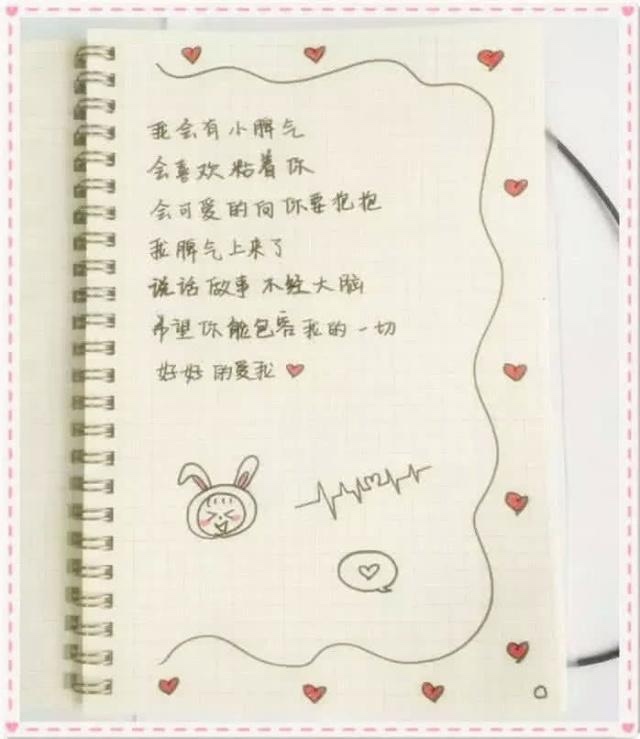 我会有小脾气
会喜欢粘着你
会可爱的向你要抱抱
我脾气上来了
说话做事不经大脑
希望你能包容我的一切
好好的爱我